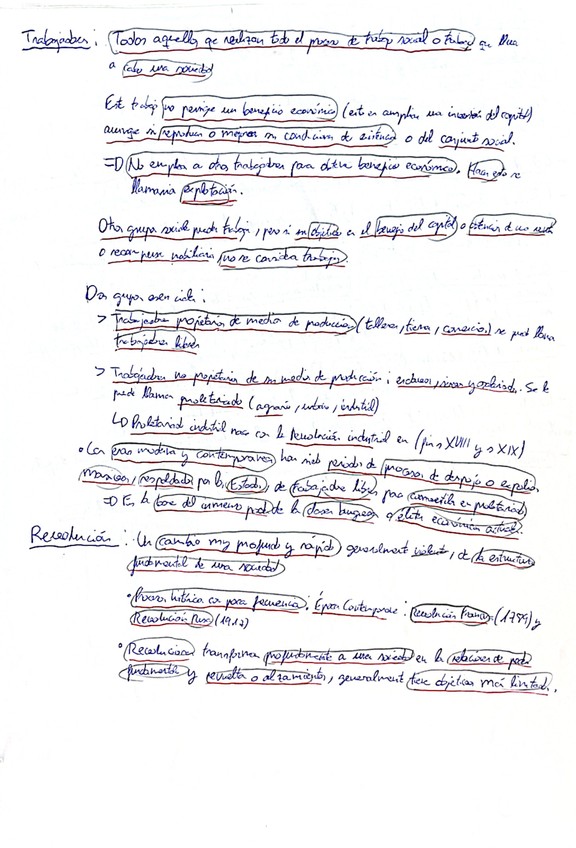 Trabajadores : Todos aquellos qe realizan todo el proceso de trabajo social o trabajo qe lleva
a cabo una sociedad
Este trabajo no persigue un beneficio económico (esto es ampliar una inversión del capital)
aunqe si reproducir o mejorar su condiciones de existencia o del conjunto social.
=D No emplea a otros trabajadores para obtener beneficio económico. Hacer esto se
llamaría explotación.
Otros grupos sociales puede trabajar, pero si su objetivo es el beneficio del capital o
o recompensa nobiliaria no se considera trabajo.
Dos grupos esenciales :
> Trabajadores propietarios de medios de producción (talleres, tierra, comercios) se puede llamar
trabajadores libres
> Trabajadores no propietarios de sus medios de producción : esclavos, siervos y proletariado. Se le
puede llamar proletariado (agrario, urbano, industrial)
LD Proletariado industrial nace con la Revolución industrial en (fin s XVIII y s XIX)
• Las eras moderna y contemporanea han sido periodos de procesos de despojo o expolio
masivos, respaldados por los Estados, de trabajadores libres para convertirlos en proletarios
=D Es la base del inmenso poder de las clases burguesas o élites económicas actuales.
Revolución : Un cambio muy profundo y rápido generalmente violento, de la estructura
fundamental de una sociedad
• Proceso histórico con poca frecuencia. Época Contemporanea : Revolución Francesa (1789) y
Revolución Rusa (1917)
• Revoluciones transforma profundamente a una sociedad en las relaciones de poder
fundamentales y revuelta o alzamientos, generalmente tiene objetivos más limitados.